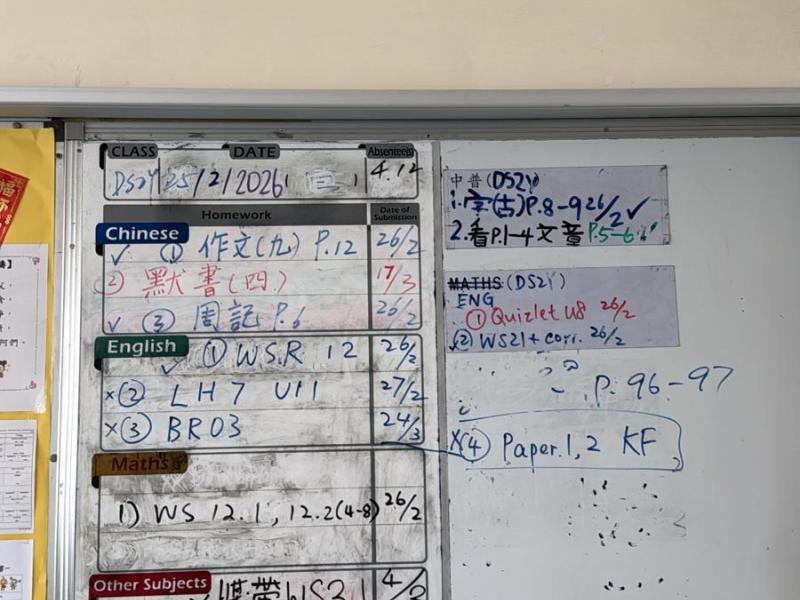 CLASS DATE Absentees
DS2Y 25/2/2026 (三) 4.12
Homework Date of Submission
Chinese
✓ ① 作文(九) P.12 26/2
② 默書(四) 17/3
✓ ③ 周記 P.6 26/2
English
✓ ① WS.R 12 26/2
×② LH 7 U11 27/2
×③ BR03 24/3
Maths
1) WS 12.1, 12.2(4-8) 26/2
Other Subjects
WS3.1 4/3
中普(DS2Y)
1.字(古)P.8-9 26/2 ✓
2.看P.1-4文章 P.5-6
MATHS (DS2Y)
ENG
① Quizlet U8 26/2
② WS21+corr. 26/2
P. 96-97
×④ Paper.1,2 KF
福